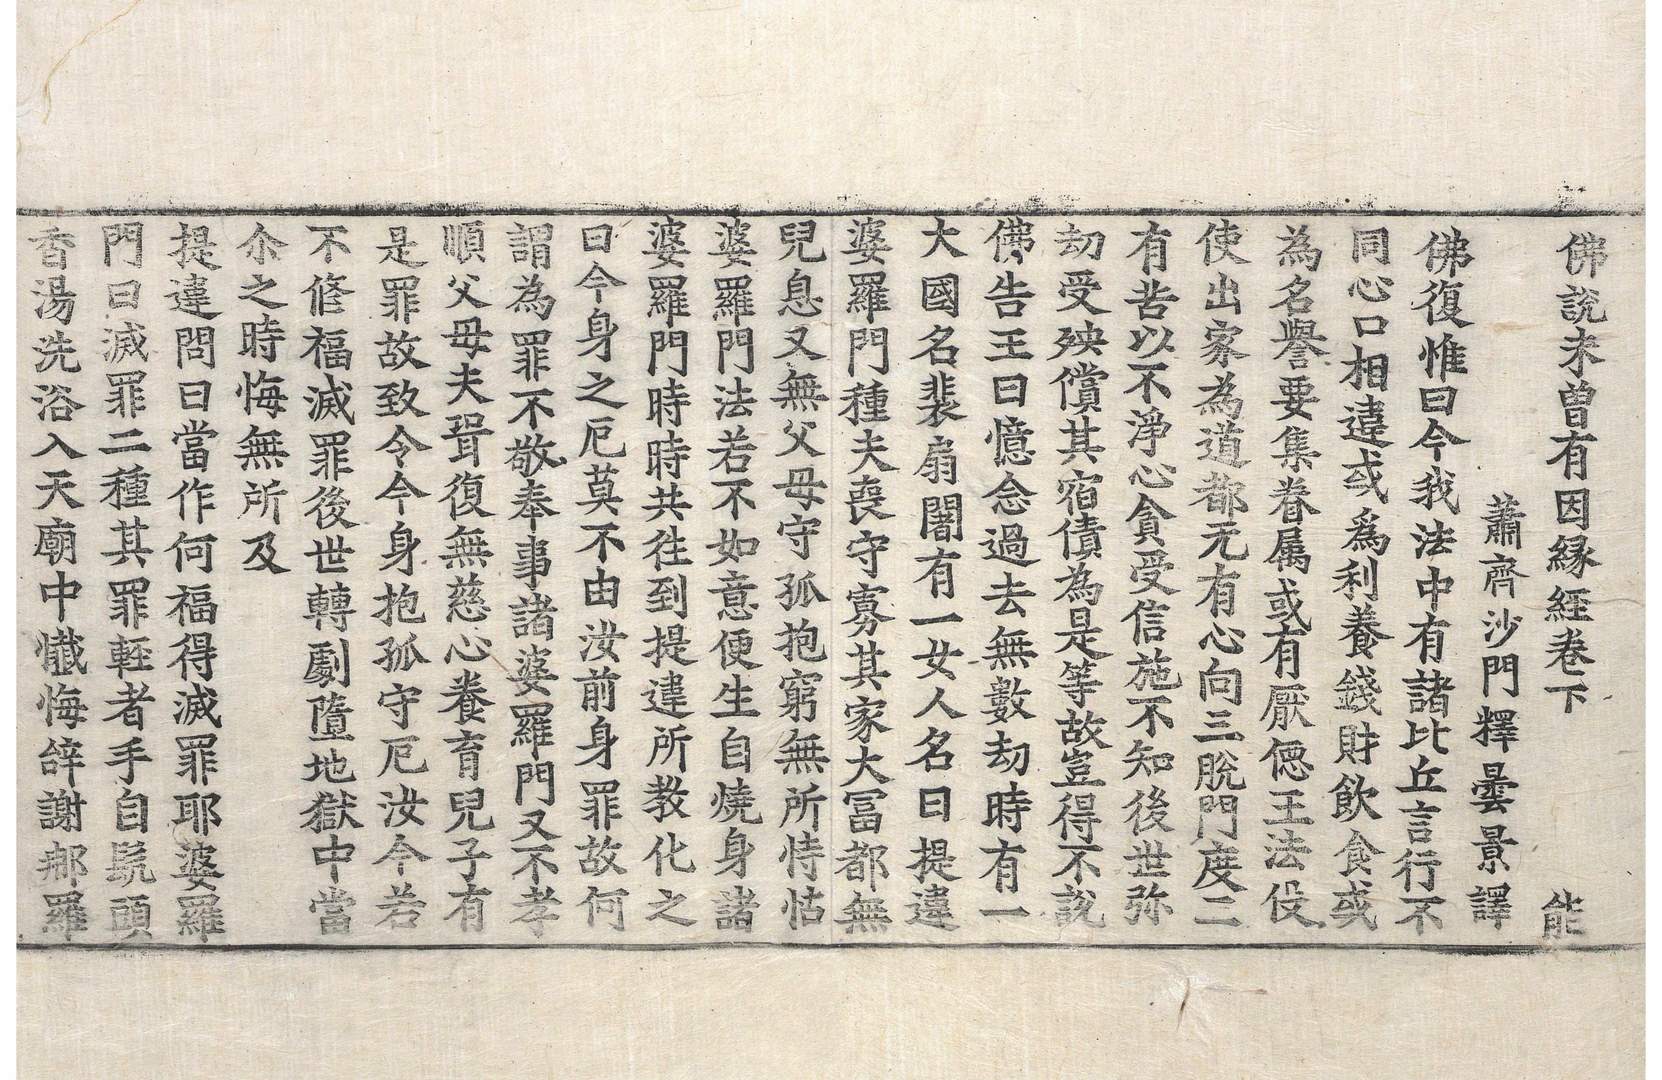 佛說未曾有因縁經卷下　能
蕭齊沙門釋曇景譯
佛復惟曰今我法中有諸比丘言行不
同心口相違或爲利養錢財飲食或
為名譽要集眷属或有厭僫王法伇
使出家為道都无有心向三脫門度二
有苦以不淨心貪受信施不知後世弥
劫受殃償其宿債為是等故豈得不說
佛告王曰憶念過去無數劫時有一
大國名裴扇闍有一女人名曰提違
婆羅門種夫喪守寡其家大冨都無
兒息又無父母守孤抱窮無所恃怙
婆羅門法若不如意便生自燒身諸
婆羅門時時共往到提違所教化之
曰今身之厄莫不由汝前身罪故何
謂為罪不敬奉事諸婆羅門又不孝
順父母夫聟復無慈心養育兒子有
是罪故致令今身抱孤守厄汝今若
不修福滅罪後世轉劇墮地獄中當
尒之時悔無所及
提違問曰當作何福得滅罪耶婆羅
門曰滅罪二種其罪輕者手自髡頭
香湯洗浴入天廟中懺悔辝謝郍羅